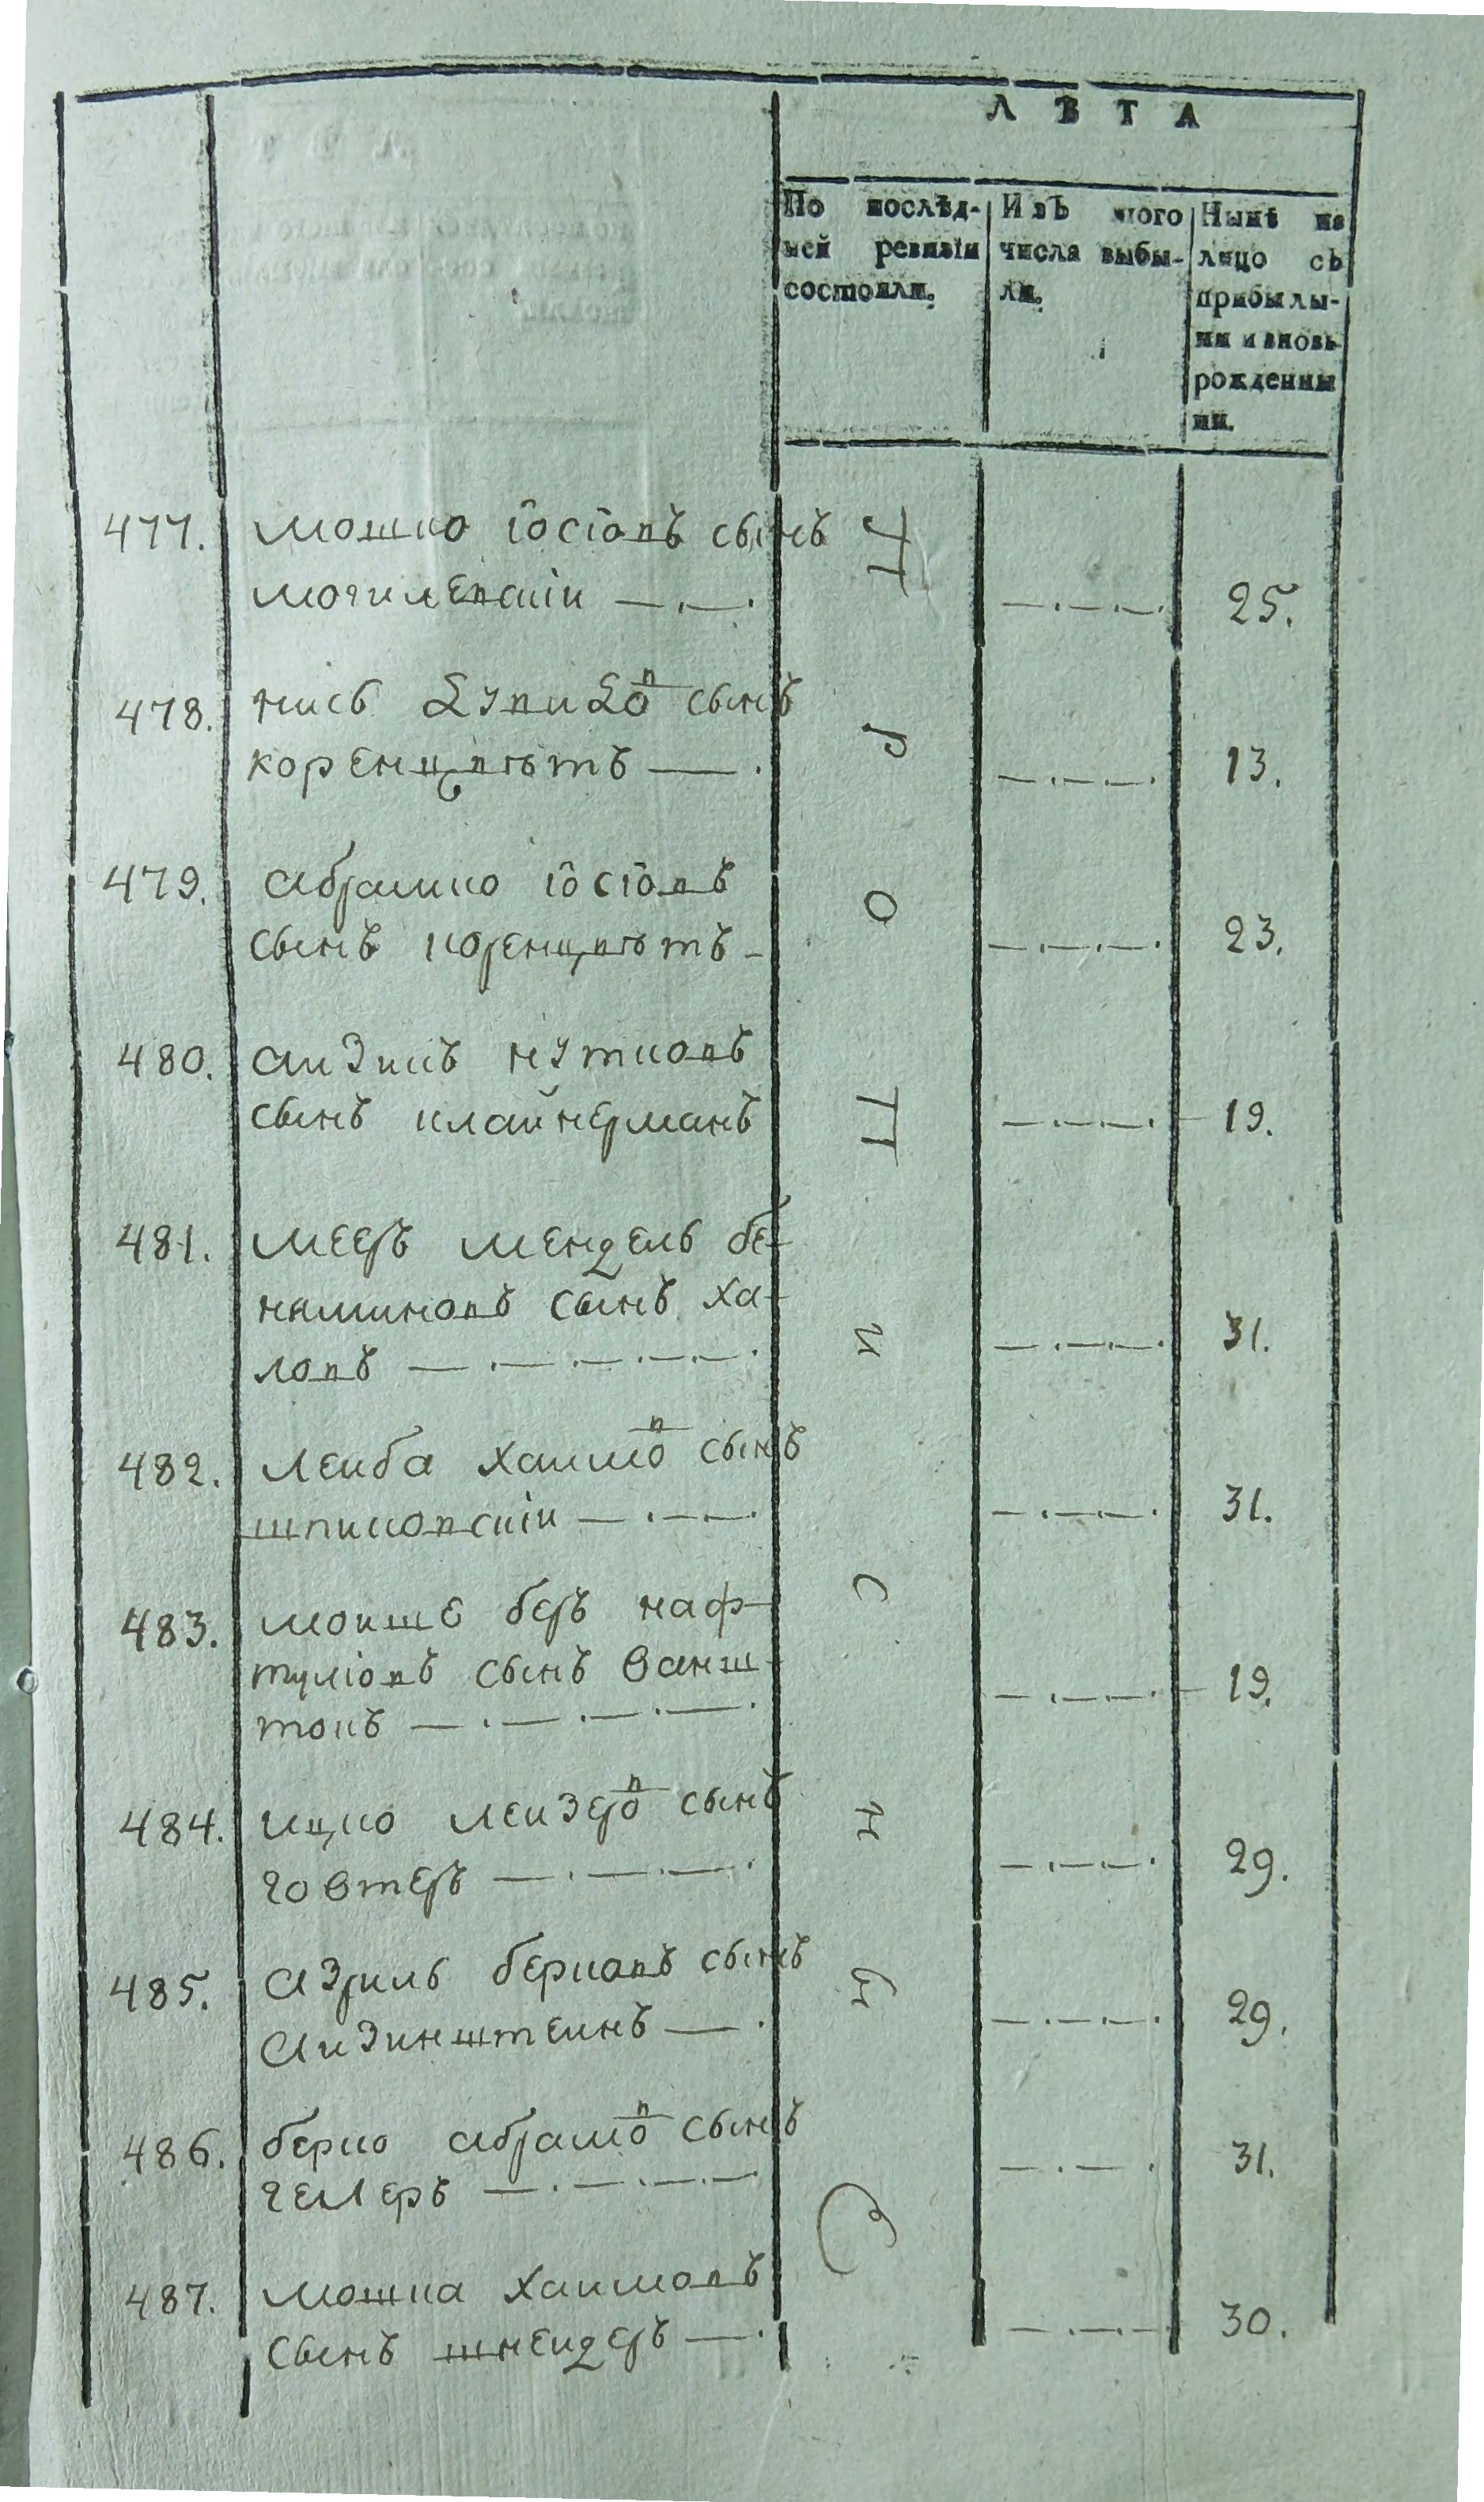 ЛѢТА
По послѣд-
ней ревизіи
состояли.
Изъ того
числа выбы-
ли.
Нынѣ на
лицо съ
прибылы-
ми и вновь
рожденны
ми.
477. мошко іосіовъ сынъ
могилевскіи 25.
478. нись зупизовъ сынъ
коренцвѣтъ 13.
479. абрамко іосіовъ
сынъ коренцвѣтъ 23.
480. аизикъ нутковъ
сынъ клайнерманъ 19.
481. мееръ мендель бе-
няминовъ сынъ ха-
ловъ 31.
482. леиба хаимовъ сынъ
шпиковскіи 31.
483. моише беръ наф-
туліовъ сынъ ванш-
токъ 19.
484. ицко леизеровъ сынъ
говтеръ 29.
485. азриль берковъ сынъ
аизинштеинъ 29.
486. берко абрамовъ сынъ
гелеръ 31.
487. мошка хаимовъ
сынъ шнеидеръ 30.